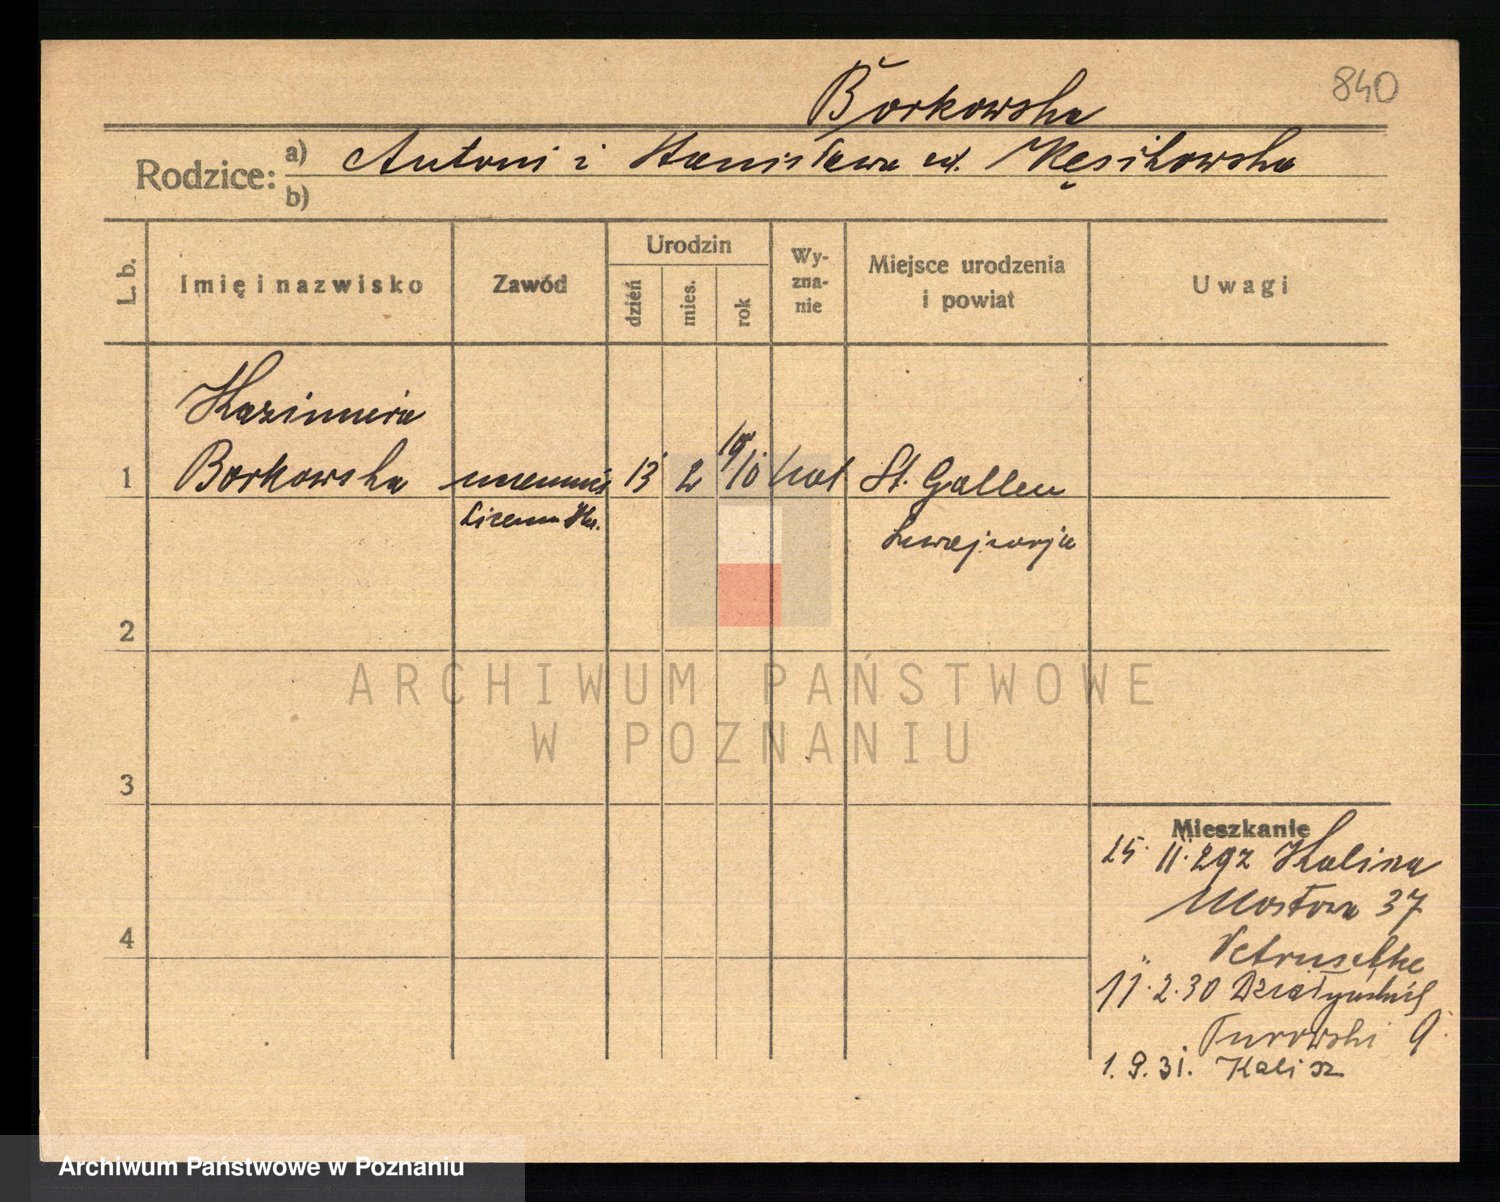 840
Borkowska
Rodzice: a) Antoni i Stanisława
b)
L. b.
Imię i nazwisko
Zawód
Urodzin
dzień
mies.
rok
Wy-
zna-
nie
Miejsce urodzenia
i powiat
Uwagi
Kazimiera
1 Borkowska 13 2 1910 kat St. Gallen
Szwajcarja
2
3
4
Mieszkanie
25. 11. 29 z
Mostowa 37
11. 2. 30 Działyńskich
Turowski 9
1. 9. 31. Kalisz
ARCHIWUM PAŃSTWOWE
W POZNANIU
Archiwum Państwowe w Poznaniu